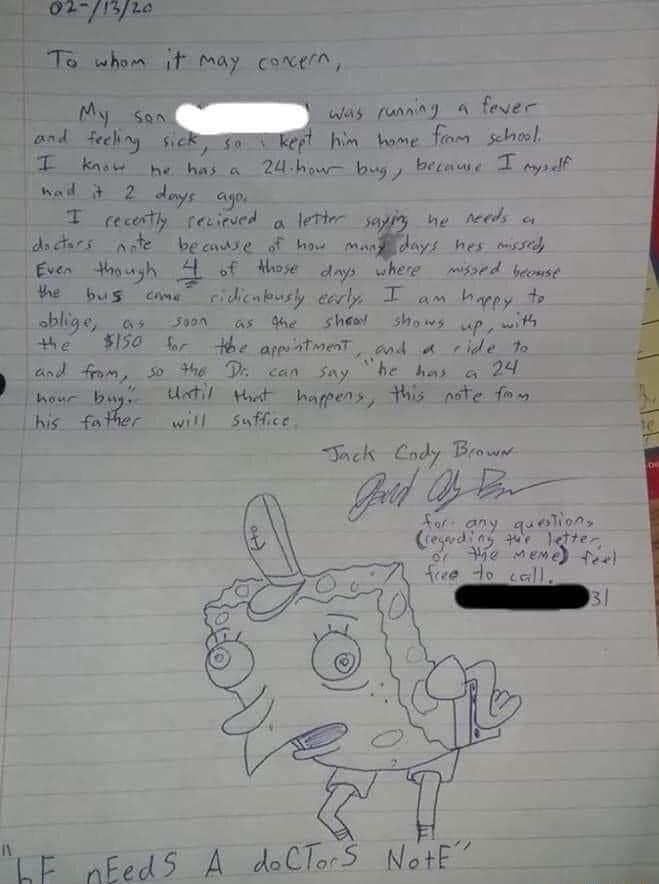 02-/13/20
To whom it may concern,
My son was running a fever
and feeling sick, so i kept him home from school.
I know he has a 24-hour bug, because I myself
had it 2 days ago.
I recently recieved a letter saying he needs a
doctors note because of how many days hes missed,
Even though 4 of those days where missed because
the bus came ridiculously early. I am happy to
oblige, as soon as the shool shows up, with
the $150 for the appointment, and a ride to
and from, so the Dr. can say "he has a 24
hour bug." Until that happens, this note from
his father will suffice.
Jack Cody Brown
for any questions
(regarding the letter,
or the meme) feel
free to call.
31
"hE nEedS A doCTorS NotE"